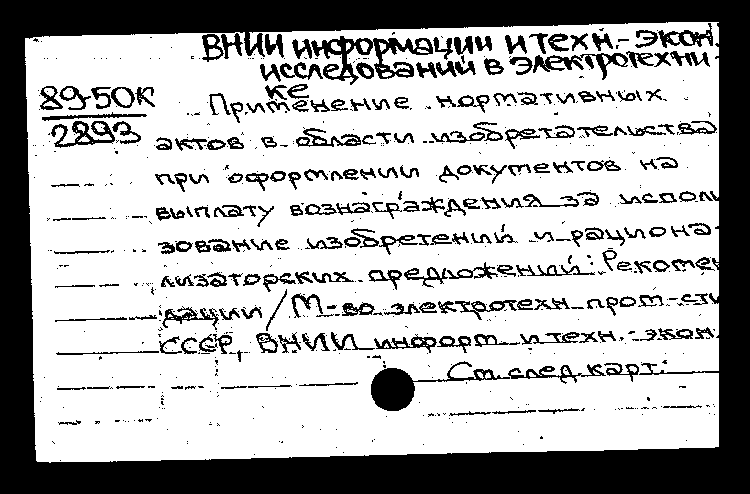 ВНИИ информации и техн.-экон.
исследований в электротехни-
ке
89-50К
2893
Применение нормативных
актов в области изобретательства
при оформлении документов на
выплату вознаграждения за исполь
зование изобретений и рациона-
лизаторских предложений: Рекомен
дации / М-во электротехн. пром-сти
СССР, ВНИИ информ. и техн.-экон.
См. след. карт.